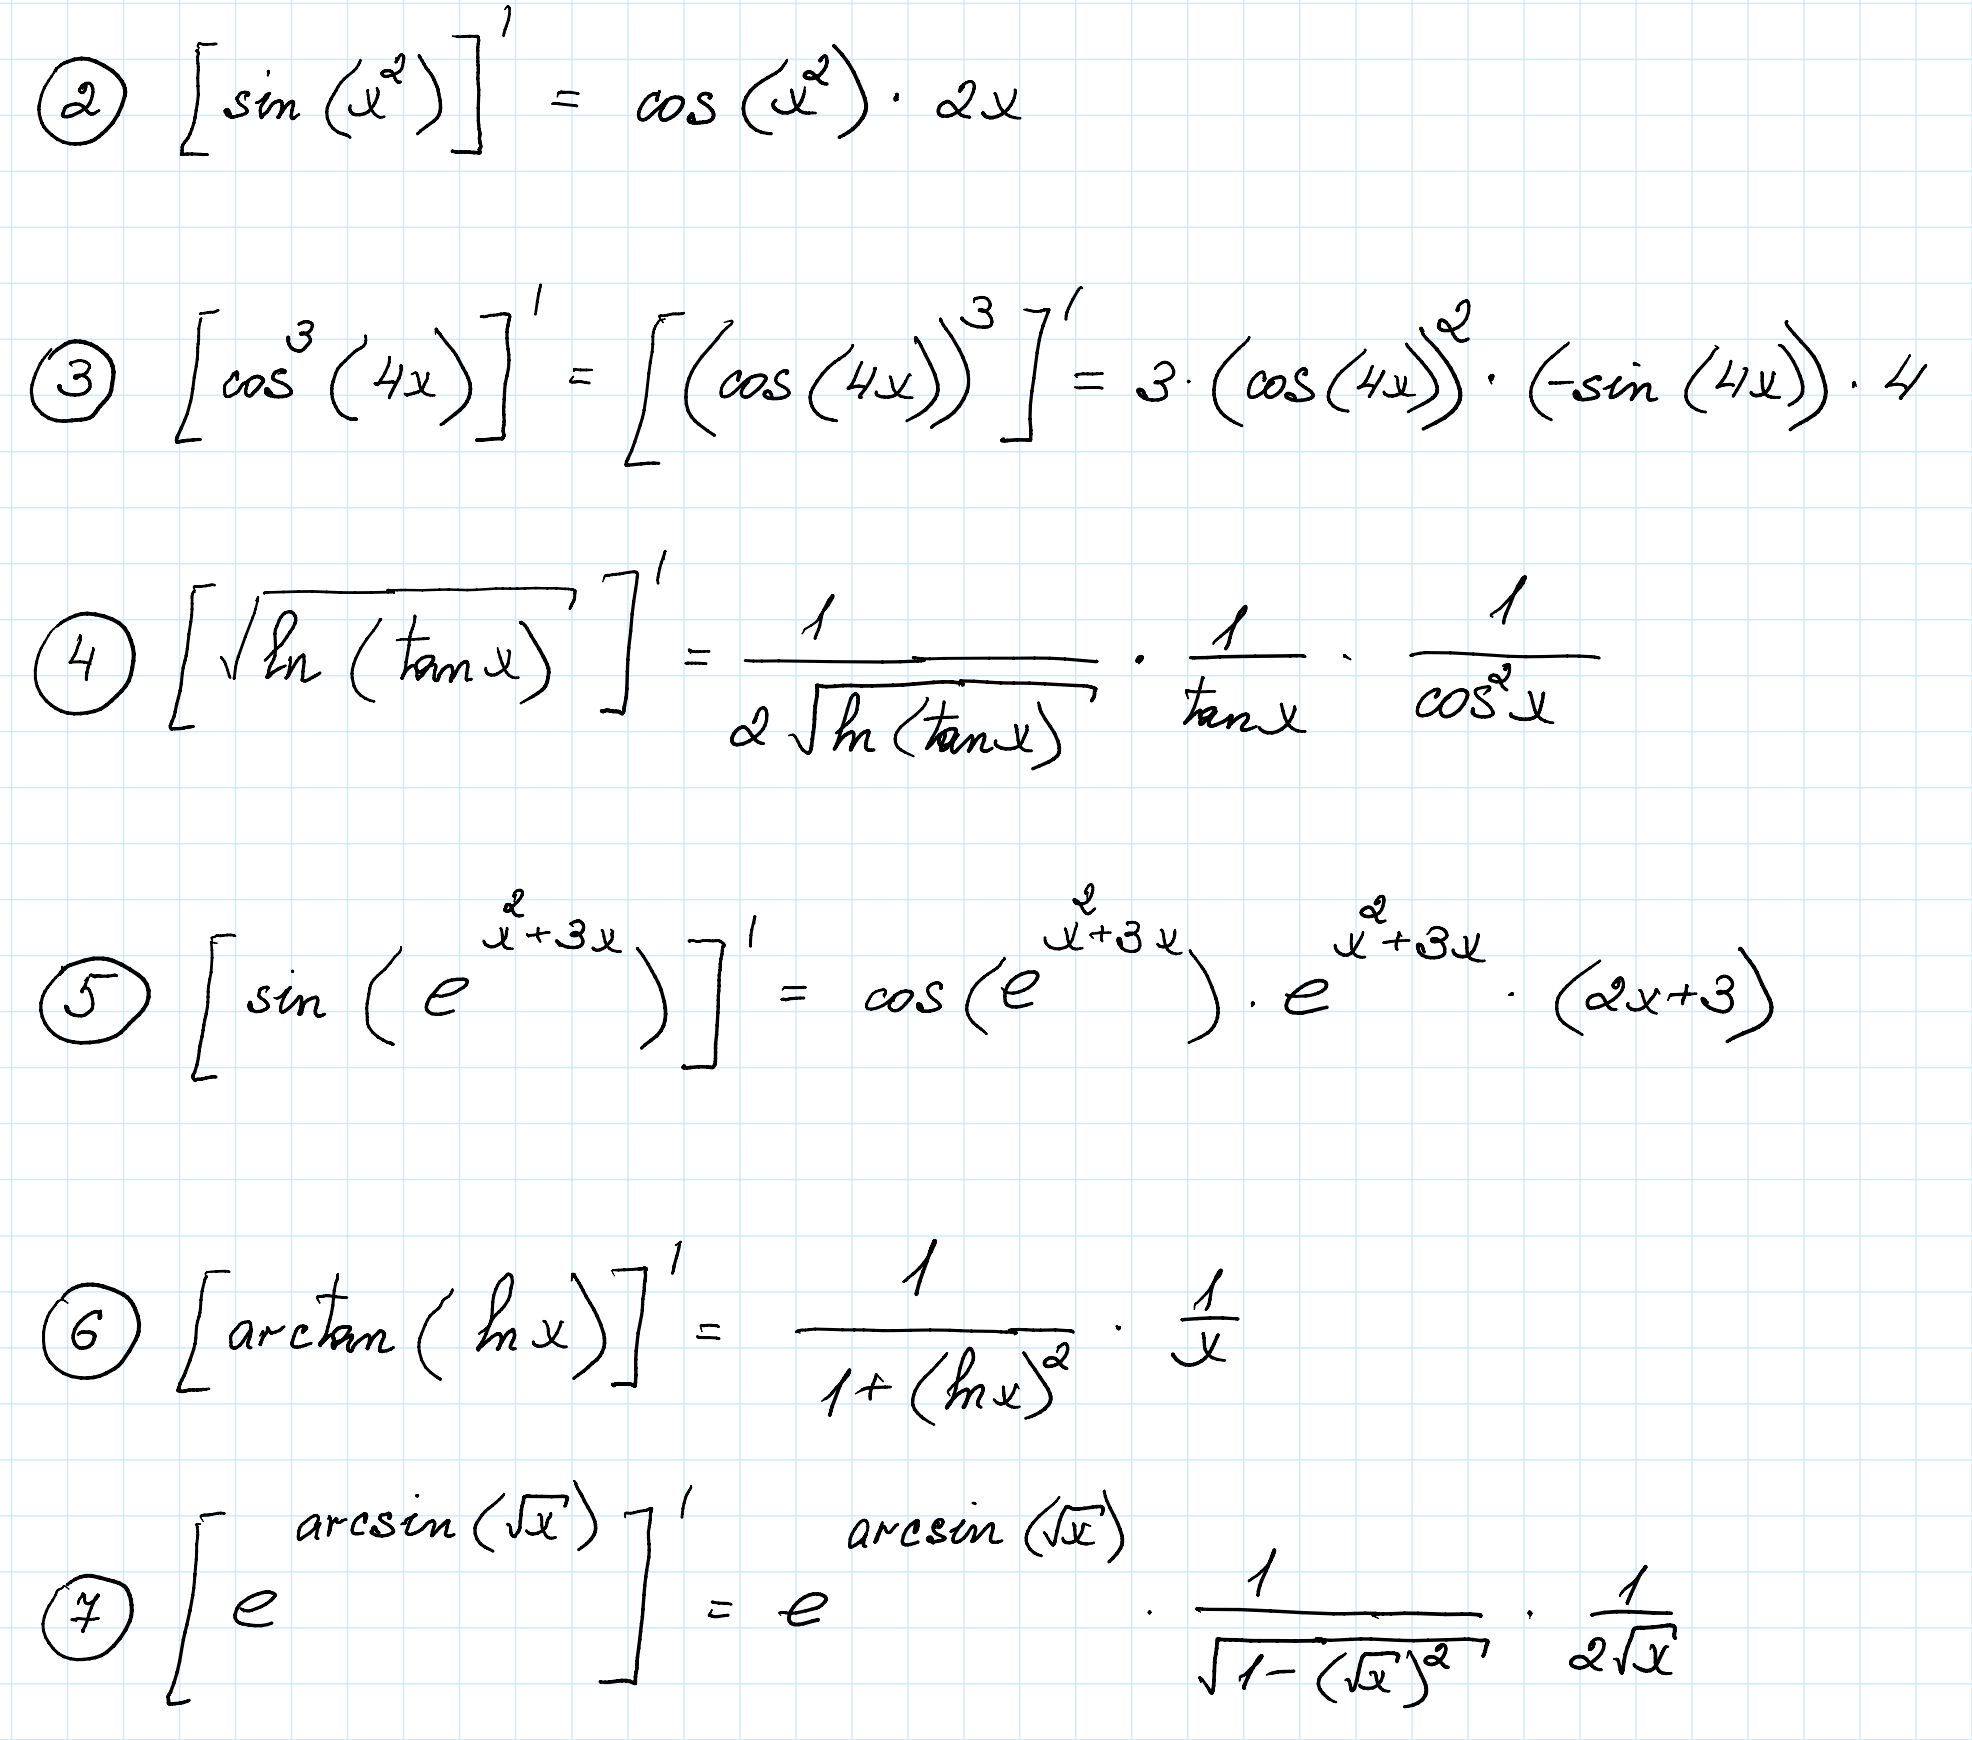 ② [sin (x²)]' = cos (x²) · 2x
③ [cos³ (4x)]' = [(cos (4x))³]' = 3 · (cos (4x))² · (-sin (4x)) · 4
④ [√(ln (tan x))]' = 1/(2√(ln (tan x))) · 1/(tan x) · 1/(cos² x)
⑤ [sin (e^(x²+3x))]' = cos (e^(x²+3x)) · e^(x²+3x) · (2x+3)
⑥ [arctan (ln x)]' = 1/(1+(ln x)²) · 1/x
⑦ [e^(arcsin (√x))]' = e^(arcsin (√x)) · 1/√(1-(√x)²) · 1/(2√x)